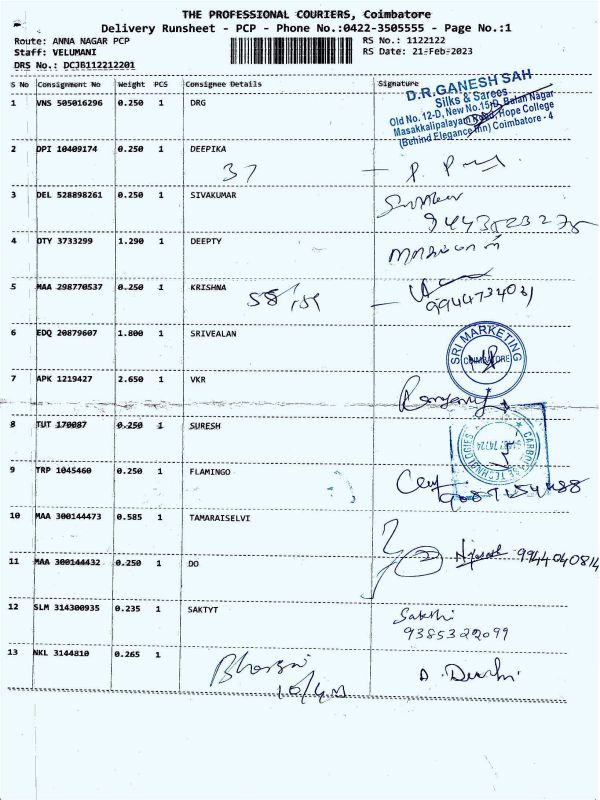 THE PROFESSIONAL COURIERS, Coimbatore
Delivery Runsheet - PCP - Phone No.:0422-3505555 - Page No.:1
Route: ANNA NAGAR PCP RS No.: 1122122
Staff: VELUMANI RS Date: 21-Feb-2023
DRS No.: DCJB112212201
S No Consignment No Weight PCS Consignee Details Signature
1 VNS 505016296 0.250 1 DRG
D.R.GANESH SAH
Silks & Sarees
Old No. 12-D, New No.15-D, Balan Nagar
Masakkalipalayam Road, Hope College
(Behind Elegance Inn) Coimbatore - 4
2 DPI 10409174 0.250 1 DEEPIKA
37
3 DEL 528898261 0.250 1 SIVAKUMAR
4 OTY 3733299 1.290 1 DEEPTY
5 MAA 298770537 0.250 1 KRISHNA
9944734031
6 EDQ 20879607 1.800 1 SRIVEALAN
SRI MARKETING
COIMBATORE
7 APK 1219427 2.650 1 VKR
8 TUT 170087 0.250 1 SURESH
TECHNOLOGIES
9 TRP 1045460 0.250 1 FLAMINGO
10 MAA 300144473 0.585 1 TAMARAISELVI
9944040814
11 MAA 300144432 0.250 1 DO
12 SLM 314300935 0.235 1 SAKTYT
Sakthi
9385322099
13 NKL 3144810 0.265 1